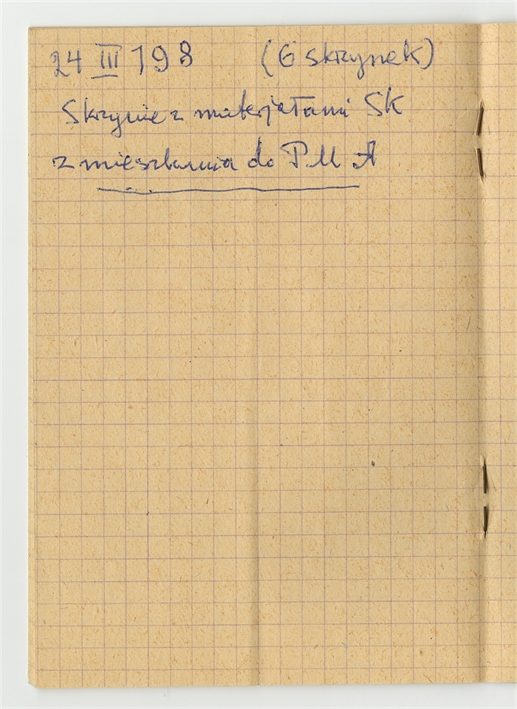 24 III 198 (6 skrzynek)
Skrzynie z materjałami SK
z mieszkania do PMA